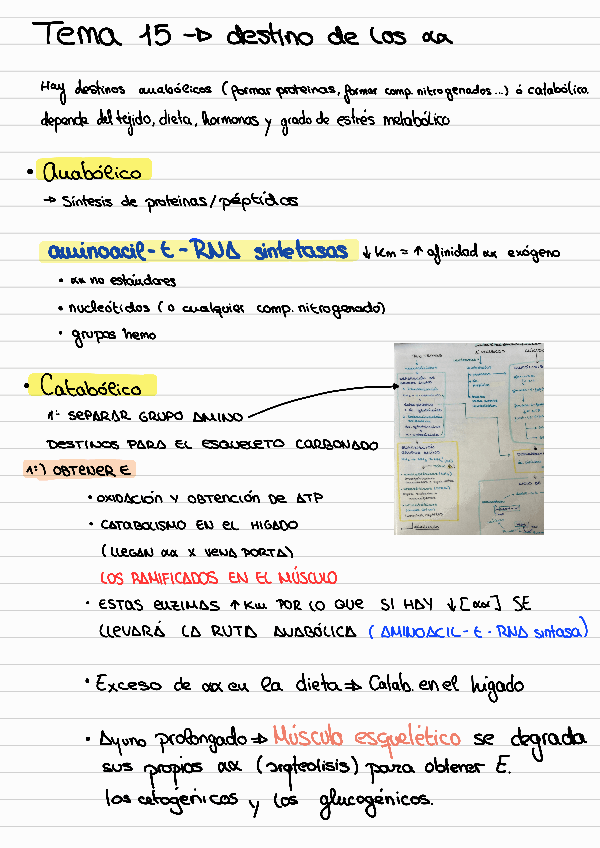 Tema 15 → destino de los aa
Hay destinos anabólicos (formar proteínas, formar comp. nitrogenados...) ó catabólico
depende del tejido, dieta, hormonas y grado de estrés metabólico
• Anabólico
→ Síntesis de proteínas/péptidos
aminoacil-t-RNA sintetasas ↓Km = ↑ afinidad aa exógeno
• aa no estándares
• nucleótidos (o cualquier comp. nitrogenado)
• grupos hemo
• Catabólico
1º SEPARAR GRUPO AMINO
DESTINOS PARA EL ESQUELETO CARBONADO
1º) OBTENER E
• OXIDACIÓN Y OBTENCIÓN DE ATP
• CATABOLISMO EN EL HIGADO
(LLEGAN aa X VENA PORTA)
LOS RAMIFICADOS EN EL MÚSCULO
• ESTAS ENZIMAS ↑Km POR LO QUE SI HAY ↓[aa] SE
LLEVARÁ LA RUTA ANABÓLICA (AMINOACIL-t-RNA sintasa)
• Exceso de aa en la dieta ⇒ Catab. en el hígado
• Ayuno prolongado ⇒ Músculo esquelético se degrada
sus propios aa (proteolisis) para obtener E.
los cetogénicos y los glucogénicos.